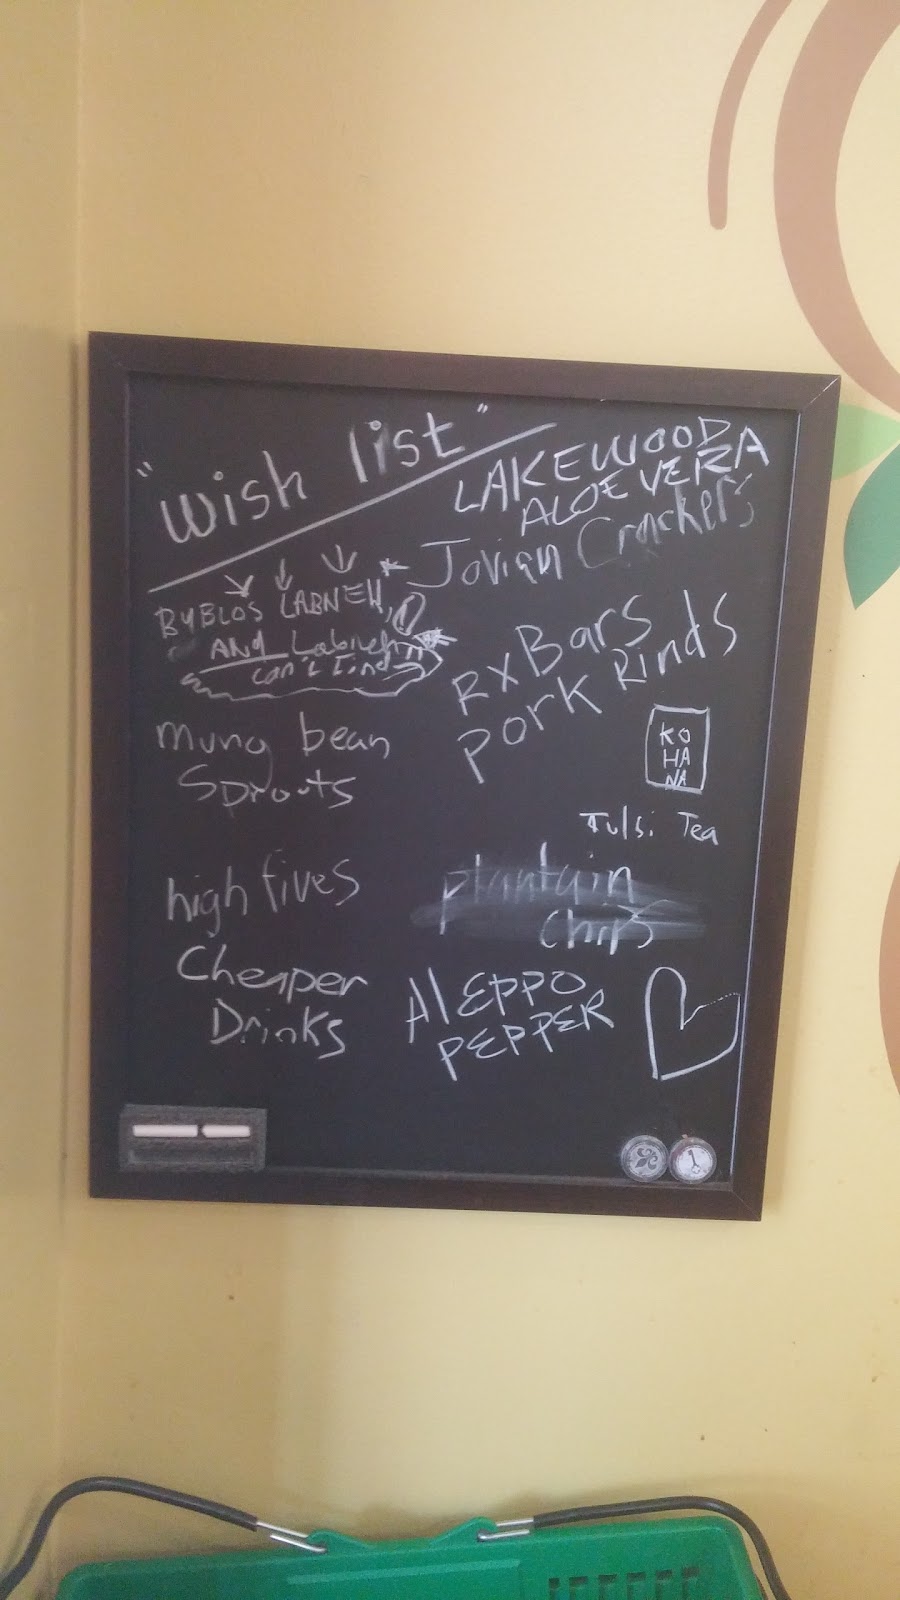 "wish list"
LAKEWOOD
ALOE VERA
Jovian Crackers
BYBLOS LABNEH,
AND Labneh
can't find
RxBars
Pork Rinds
mung bean
Sprouts
KO
HA
NA
Tulsi Tea
high fives
plantain
chips
Cheaper
Drinks
AlEPPO
PEPPER